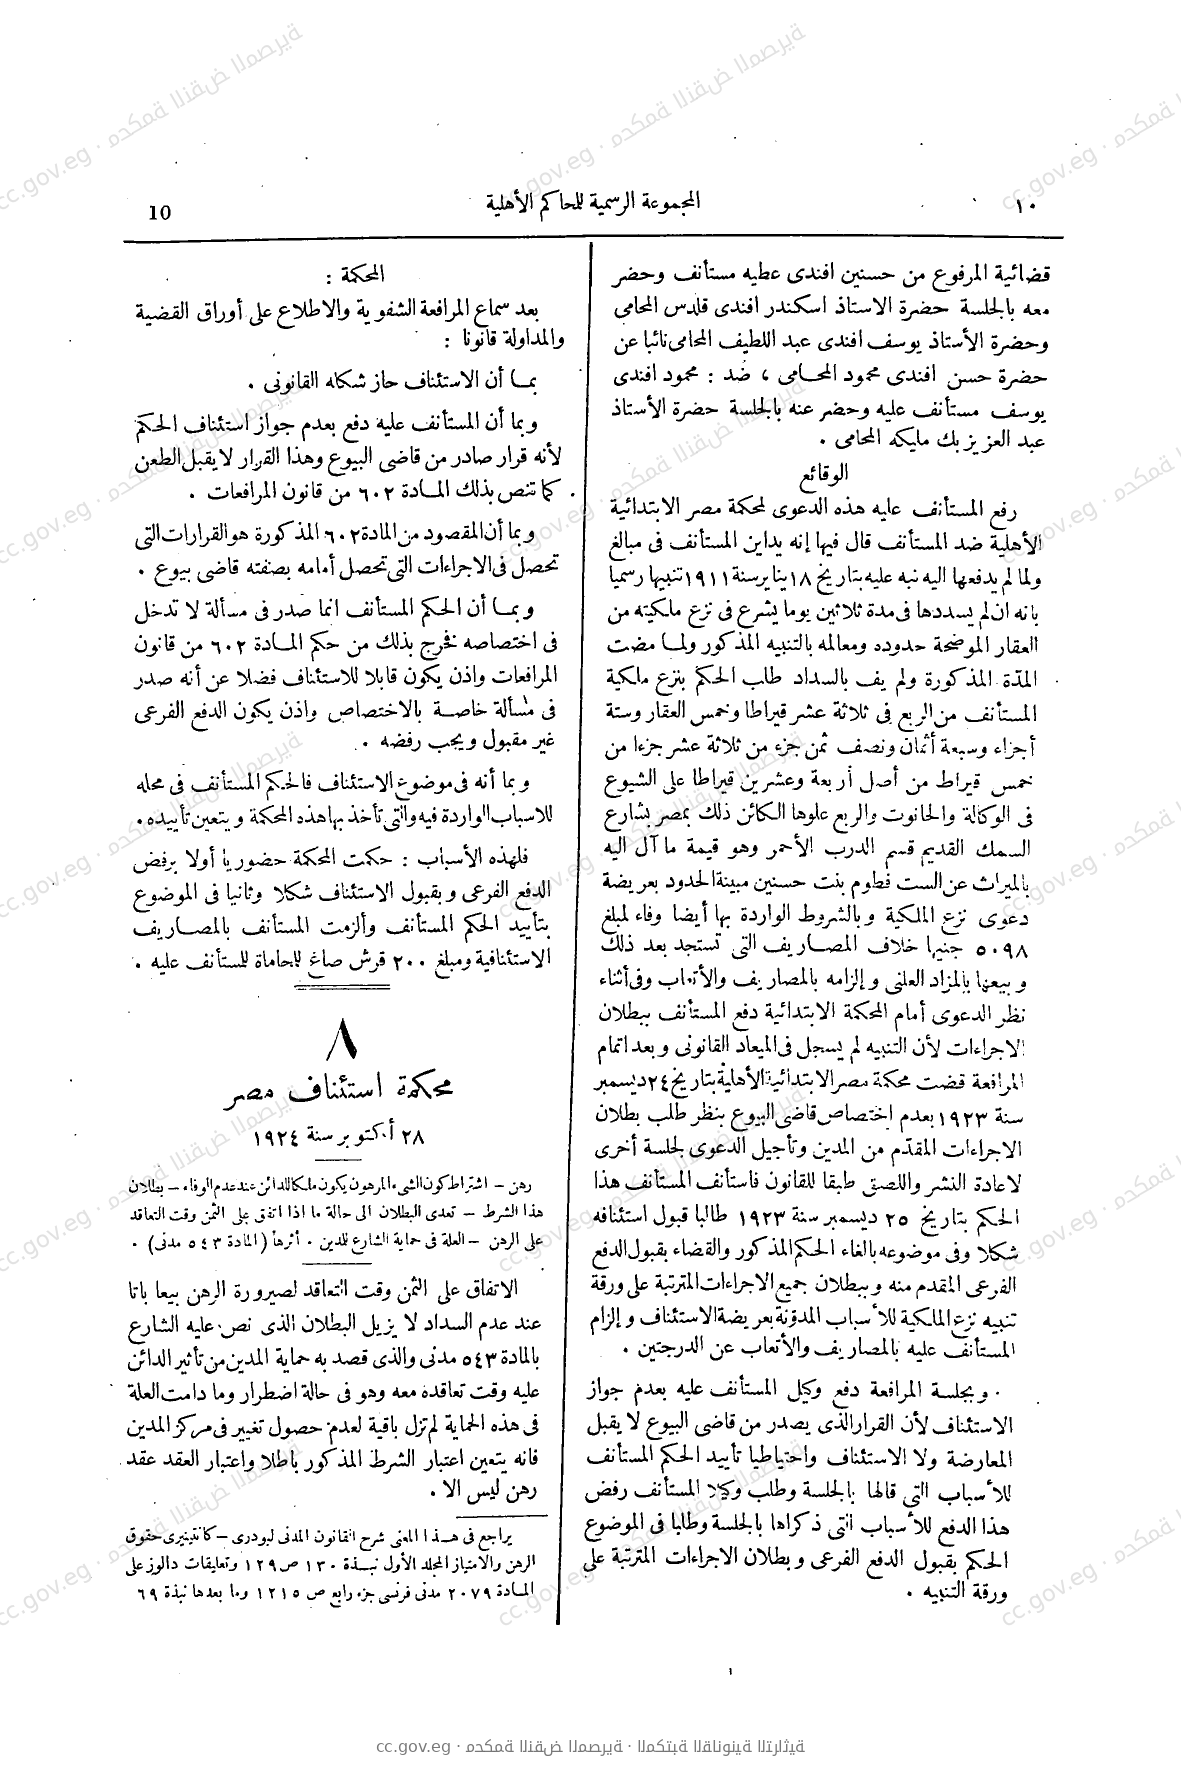 ١٠
المجموعة الرسمية للمحاكم الأهلية
10
قضائية المرفوع من حسنين افندى عطيه مستأنف وحضر
معه بالجلسة حضرة الاستاذ اسكندر افندى قلدس المحامى
وحضرة الأستاذ يوسف افندى عبد اللطيف المحامى نائبا عن
حضرة حسن افندى محمود المحامى ، ضد : محمود افندى
يوسف مستأنف عليه وحضر عنه بالجلسة حضرة الأستاذ
عبد العزيز بك مليكه المحامى .
الوقائع
رفع المستأنف عليه هذه الدعوى لمحكمة مصر الابتدائية
الأهلية ضد المستأنف قال فيها إنه يداين المستأنف فى مبالغ
ولما لم يدفعها اليه نبه عليه بتاريخ ١٨ يناير سنة ١٩١١ تنبيها رسميا
بانه ان لم يسددها فى مدة ثلاثين يوما يشرع فى نزع ملكيته من
العقار الموضحة حدوده ومعالمه بالتنبيه المذكور ولما مضت
المدّة المذكورة ولم يف بالسداد طلب الحكم بنزع ملكية
المستأنف من الربع فى ثلاثة عشر قيراطا وخمس العقار وستة
أجزاء وسبعة أثمان ونصف ثمن جزء من ثلاثة عشر جزءا من
خمس قيراط من أصل أربعة وعشرين قيراطا على الشيوع
فى الوكالة والحانوت والربع علوها الكائن ذلك بمصر بشارع
السمك القديم قسم الدرب الأحمر وهو قيمة ما آل اليه
بالميراث عن الست فطوم بنت حسنين مبينة الحدود بعريضة
دعوى نزع الملكية وبالشروط الواردة بها أيضا وفاء لمبلغ
٥٠٩٨ جنيها خلاف المصاريف التى تستجد بعد ذلك
وبيعها بالمزاد العلنى وإلزامه بالمصاريف والأتعاب وفى أثناء
نظر الدعوى أمام المحكمة الابتدائية دفع المستأنف ببطلان
الاجراءات لأن التنبيه لم يسجل فى الميعاد القانونى وبعد اتمام
المرافعة قضت محكمة مصر الابتدائية الأهلية بتاريخ ٢٤ ديسمبر
سنة ١٩٢٣ بعدم اختصاص قاضى البيوع بنظر طلب بطلان
الاجراءات المقدّم من المدين وتأجيل الدعوى لجلسة أخرى
لاعادة النشر واللصق طبقا للقانون فاستأنف المستأنف هذا
الحكم بتاريخ ٢٥ ديسمبر سنة ١٩٢٣ طالبا قبول استئنافه
شكلا وفى موضوعه بالغاء الحكم المذكور والقضاء بقبول الدفع
الفرعى المتقدم منه وببطلان جميع الاجراءات المترتبة على ورقة
تنبيه نزع الملكية للأسباب المدوّنة بعريضة الاستئناف وإلزام
المستأنف عليه بالمصاريف والأتعاب عن الدرجتين .
وبجلسة المرافعة دفع وكيل المستأنف عليه بعدم جواز
الاستئناف لأن القرار الذى يصدر من قاضى البيوع لا يقبل
المعارضة ولا الاستئناف واحتياطيا تأييد الحكم المستأنف
للأسباب التى قالها بالجلسة وطلب وكيلا المستأنف رفض
هذا الدفع للأسباب التى ذكراها بالجلسة وطلبا فى الموضوع
الحكم بقبول الدفع الفرعى وبطلان الاجراءات المترتبة على
ورقة التنبيه .
المحكمة :
بعد سماع المرافعة الشفوية والاطلاع على أوراق القضية
والمداولة قانونا :
بما أن الاستئناف حاز شكله القانونى .
وبما أن المستأنف عليه دفع بعدم جواز استئناف الحكم
لأنه قرار صادر من قاضى البيوع وهذا القرار لا يقبل الطعن
كما تنص بذلك المادة ٦٠٢ من قانون المرافعات .
وبما أن المقصود من المادة ٦٠٢ المذكورة هو القرارات التى
تحصل فى الاجراءات التى تحصل أمامه بصفته قاضى بيوع .
وبما أن الحكم المستأنف انما صدر فى مسألة لا تدخل
فى اختصاصه فخرج بذلك من حكم المادة ٦٠٢ من قانون
المرافعات واذن يكون قابلا للاستئناف فضلا عن أنه صدر
فى مسألة خاصة بالاختصاص واذن يكون الدفع الفرعى
غير مقبول ويجب رفضه .
وبما أنه فى موضوع الاستئناف فالحكم المستأنف فى محله
للاسباب الواردة فيه والتى تأخذ بها هذه المحكمة ويتعين تأييده .
فلهذه الأسباب : حكمت المحكمة حضوريا أولا برفض
الدفع الفرعى وبقبول الاستئناف شكلا وثانيا فى الموضوع
بتأييد الحكم المستأنف وألزمت المستأنف بالمصاريف
الاستئنافية ومبلغ ٢٠٠ قرش صاغ للمحاماة للمستأنف عليه .
٨
محكمة استئناف مصر
٢٨ أكتوبر سنة ١٩٢٤
رهن – اشتراط كون الشىء المرهون يكون ملكا للدائن عند عدم الوفاء – بطلان
هذا الشرط – تعدى البطلان الى حالة ما اذا اتفق على الثمن وقت التعاقد
على الرهن – العلة فى حماية الشارع للمدين . أثرها (المادة ٥٤٣ مدنى) .
الاتفاق على الثمن وقت التعاقد لصيرورة الرهن بيعا باتا
عند عدم السداد لا يزيل البطلان الذى نص عليه الشارع
بالمادة ٥٤٣ مدنى والذى قصد به حماية المدين من تأثير الدائن
عليه وقت تعاقده معه وهو فى حالة اضطرار وما دامت العلة
فى هذه الحماية لم تزل باقية لعدم حصول تغيير فى مركز المدين
فانه يتعين اعتبار الشرط المذكور باطلا واعتبار العقد عقد
رهن ليس الا .
يراجع فى هذا المعنى شرح القانون المدنى لبودرى – كانتينيرى حقوق
الرهن والامتياز المجلد الأول نبذة ١٣٠ ص ١٢٩ وتعليقات دالوز على
المادة ٢٠٧٩ مدنى فرنسى جزء رابع ص ١٢١٥ وما بعدها نبذة ٦٩
cc.gov.eg · محكمة النقض المصرية · المكتبة القانونية التراثية